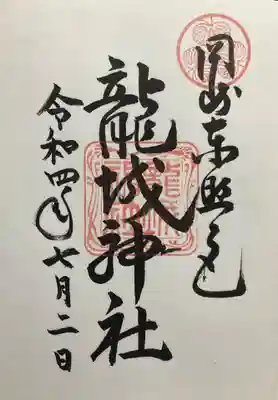 岡崎東照宮
龍城神社
令和四年七月二日